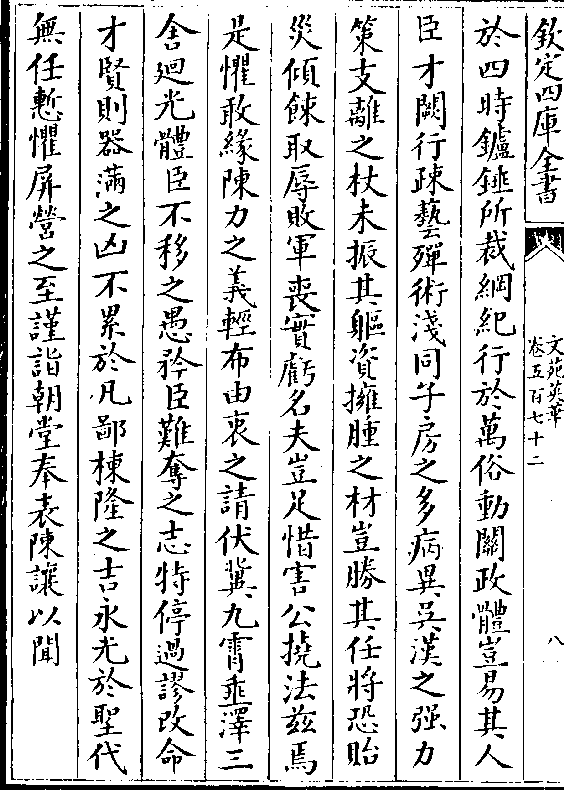 欽定四庫全書
文苑英華
卷五百七十二
八
於四時鑪錘所裁綱紀行於萬俗動關政體豈易其人
臣才闕行疎藝殫術淺同子房之多病異吳漢之强力
策支離之杖未振其軀資擁腫之材豈勝其任將恐貽
災傾餗取辱敗軍喪實虧名夫豈足惜害公撓法兹焉
是懼敢緣陳力之義輕布由衷之請伏冀九霄垂澤三
舍廻光體臣不移之愚矜臣難奪之志特停過謬改命
才賢則器滿之凶不累於凡鄙棟隆之吉永光於聖代
無任慙懼屏營之至謹詣朝堂奉表陳讓以聞